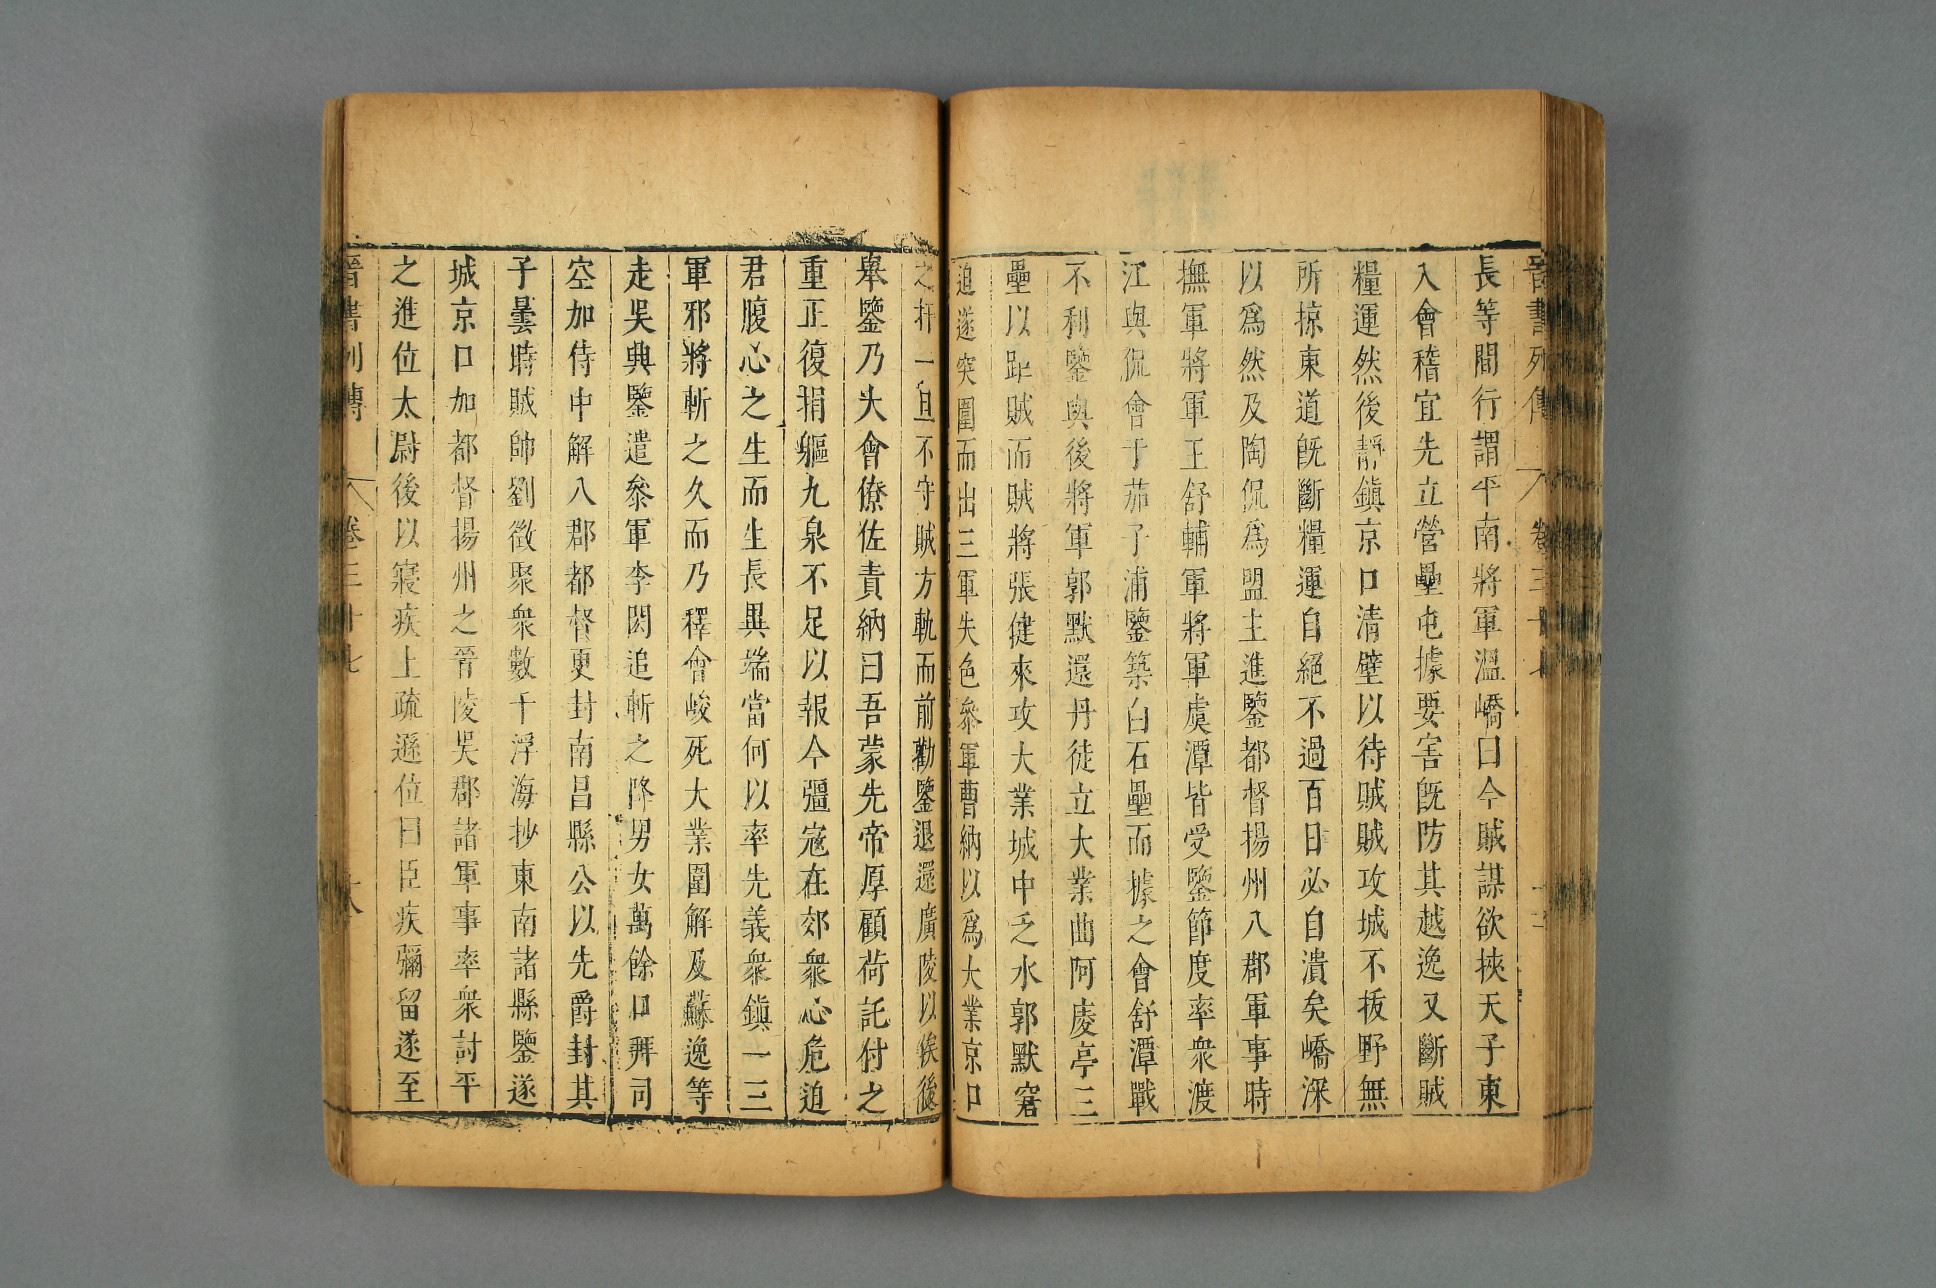 晉書列傳 卷三十七
長等間行謂平南將軍溫嶠曰今賊謀欲挾天子東
入會稽宜先立營壘屯據要害旣防其越逸又斷賊
糧運然後靜鎭京口清壁以待賊賊攻城不拔野無
所掠東道旣斷糧運自絕不過百日必自潰矣嶠深
以爲然及陶侃爲盟主進鑒都督揚州八郡軍事時
撫軍將軍王舒輔軍將軍虞潭皆受鑒節度率衆渡
江與侃會于茄子浦鑒築白石壘而據之會舒潭戰
不利鑒與後將軍郭默還丹徒立大業曲阿庱亭三
壘以距賊而賊將張健來攻大業城中乏水郭默窘
迫遂突圍而出三軍失色參軍曹納以爲大業京口
之扞一旦不守賊方軌而前勸鑒退還廣陵以俟後
舉鑒乃大會僚佐責納曰吾蒙先帝厚顧荷託付之
重正復捐軀九泉不足以報今彊寇在郊衆心危迫
君腹心之佐而生長異端當何以率先義衆鎭一三
軍邪將斬之久而乃釋會峻死大業圍解及蘇逸等
走吳興鑒遣參軍李閎追斬之降男女萬餘口拜司
空加侍中解八郡都督更封南昌縣公以先爵封其
子曇時賊帥劉徵聚衆數千浮海抄東南諸縣鑒遂
城京口加都督揚州之晉陵吳郡諸軍事率衆討平
之進位太尉後以寢疾上疏遜位曰臣疾彌留遂至
晉書列傳 卷三十七 十八